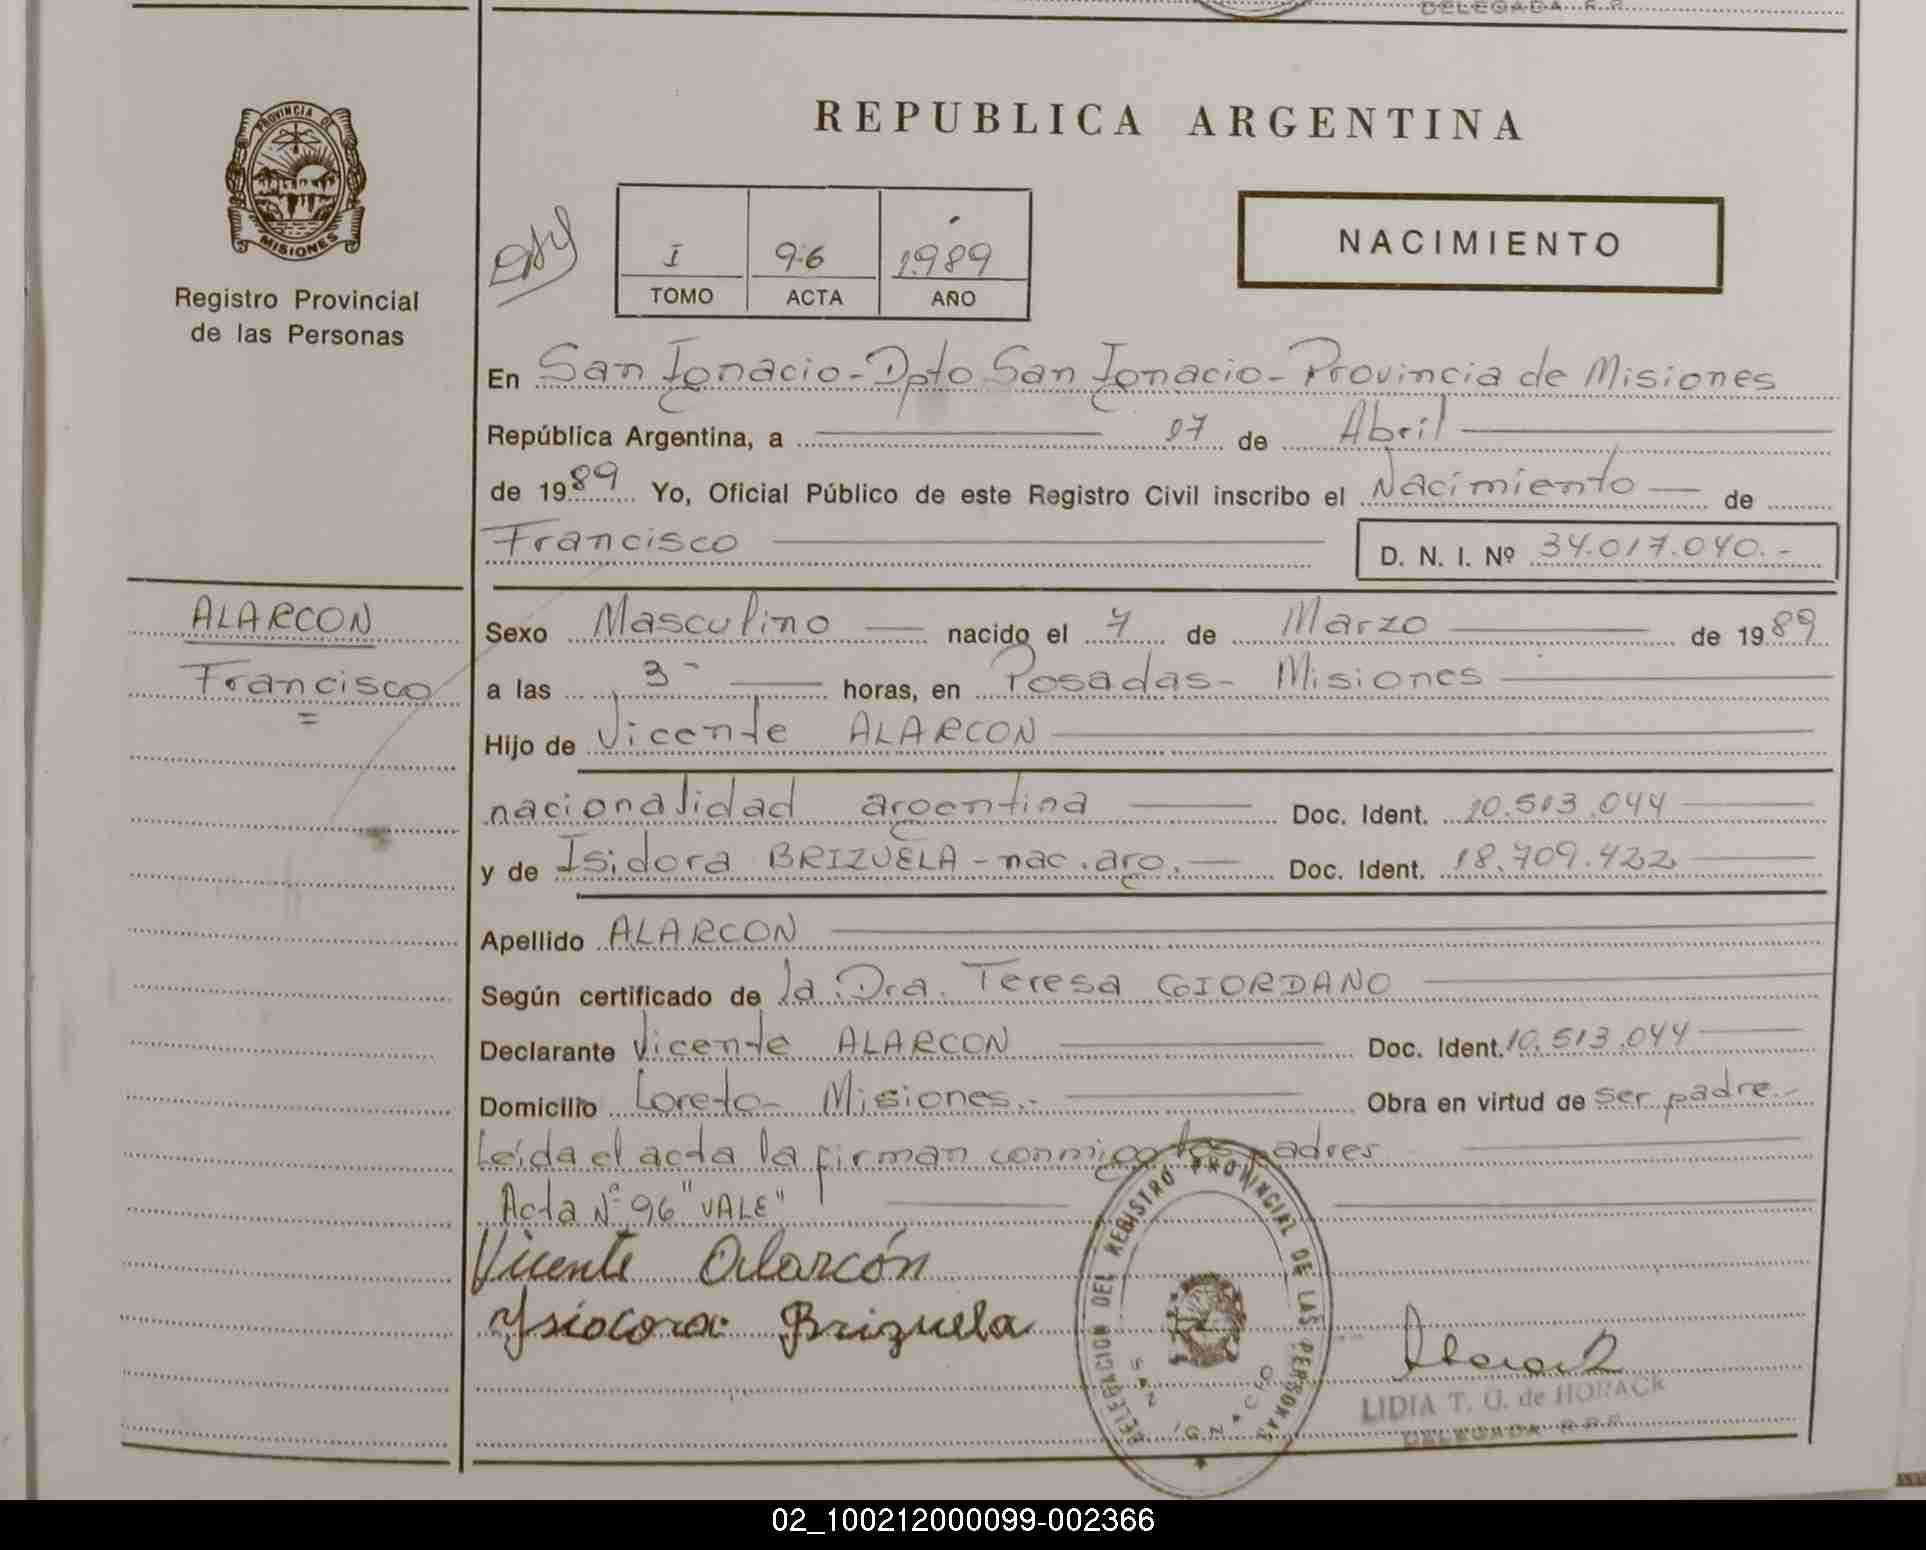 DELEGADA R.P.
REPUBLICA ARGENTINA
PROVINCIA DE
MISIONES
Registro Provincial
de las Personas
I 96 1989
TOMO ACTA AÑO
NACIMIENTO
En San Ignacio-Dpto San Ignacio-Provincia de Misiones
República Argentina, a 07 de Abril
de 1989 Yo, Oficial Público de este Registro Civil inscribo el Nacimiento de
Francisco D. N. I. Nº 34.017.040.-
ALARCON
Francisco
=
Sexo Masculino nacido el 7 de Marzo de 1989
a las 3- horas, en Posadas- Misiones
Hijo de Vicente ALARCON
nacionalidad argentina Doc. Ident. 10.513.044
y de Isidora BRIZUELA-nac.arg. Doc. Ident. 18.709.422
Apellido ALARCON
Según certificado de la Dra. Teresa GIORDANO
Declarante Vicente ALARCON Doc. Ident. 10.513.044
Domicilio Loreto- Misiones.- Obra en virtud de ser padre.-
Leída el acta la firman conmigo los padres
Acta Nº 96 "VALE"
Vicente Alarcón
Ysidora Brizuela
DELEGACION DEL REGISTRO PROVINCIAL DE LAS PERSONAS
SAN IGNACIO
LIDIA T. G. de HORACK
DELEGADA R.P.P.
02_100212000099-002366